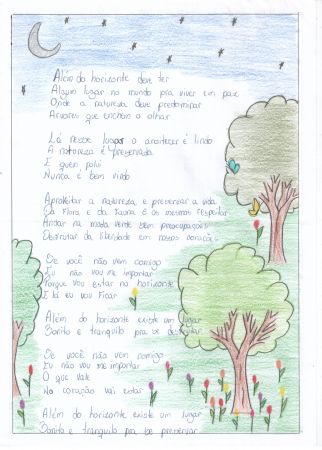 Além do horizonte deve ter
Algum lugar no mundo pra viver em paz
Onde a natureza deve predominar
Arvores que enchem o olhar
Lá nesse lugar o acontecer é lindo
A natureza é preservada
E quem polui
Nunca é bem vindo
Aproveitar a natureza, e preservar a vida
Da Flora e da Fauna é os mesmos respeitar
Andar na mata verde sem preocupações
Desfrutar da liberdade em nosso coração
Se você não vem comigo
Eu não vou me importar
Porque vou estar no horizonte
E lá eu vou ficar
Além do horizonte existe um lugar
Bonito e tranquilo pra se desfrutar
Se você não vem comigo
Eu não vou me importar
O que vale
No coração vai estar
Além do horizonte existe um lugar
Bonito e tranquilo pra se preservar